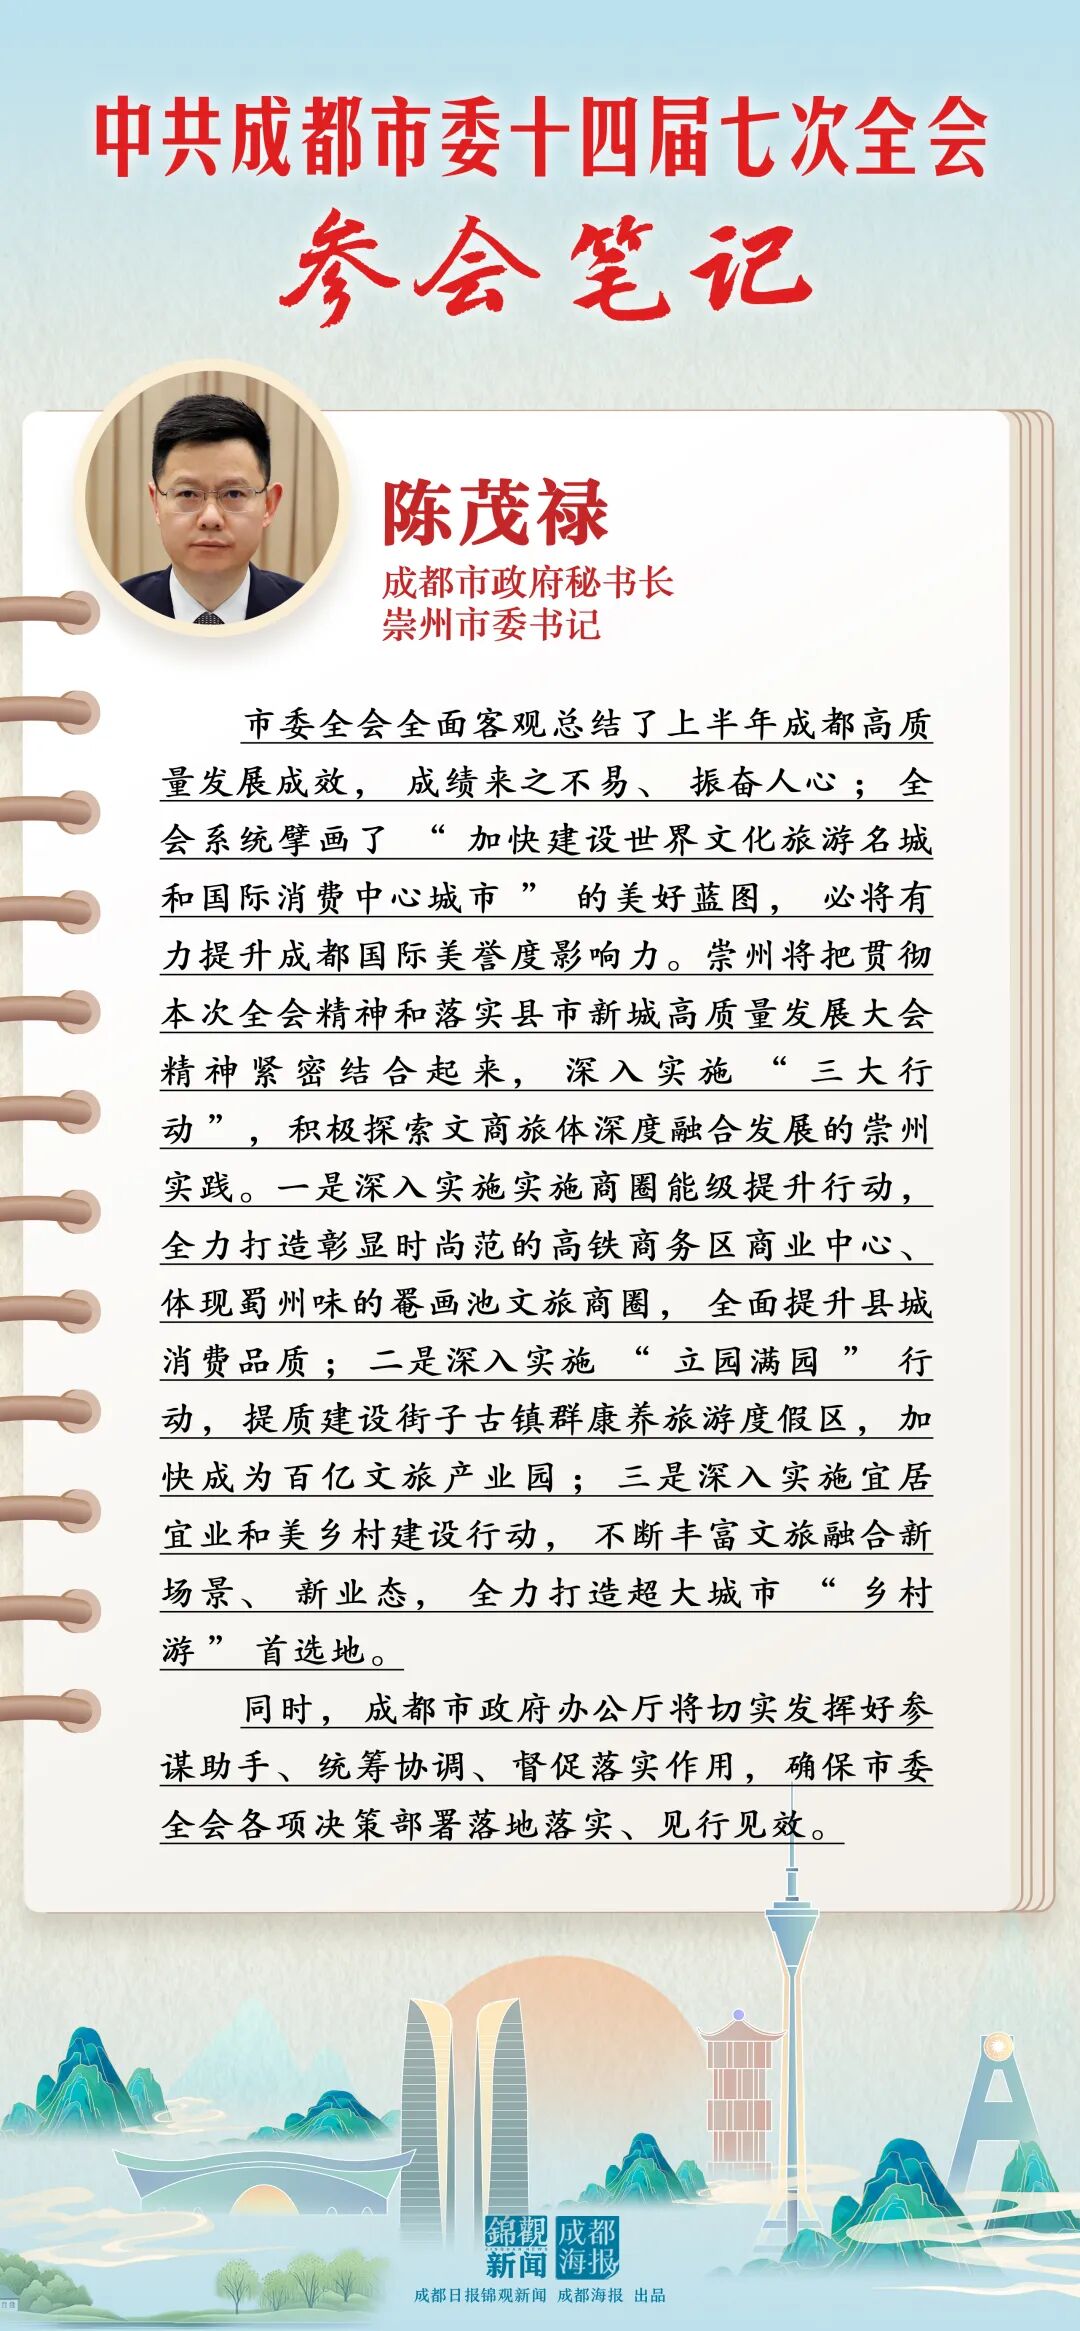 中共成都市委十四届七次全会
参会笔记
陈茂禄
成都市政府秘书长
崇州市委书记
市委全会全面客观总结了上半年成都高质
量发展成效，成绩来之不易、振奋人心；全
会系统擘画了“加快建设世界文化旅游名城
和国际消费中心城市”的美好蓝图，必将有
力提升成都国际美誉度影响力。崇州将把贯彻
本次全会精神和落实县市新城高质量发展大会
精神紧密结合起来，深入实施“三大行
动”，积极探索文商旅体深度融合发展的崇州
实践。一是深入实施实施商圈能级提升行动，
全力打造彰显时尚范的高铁商务区商业中心、
体现蜀州味的罨画池文旅商圈，全面提升县城
消费品质；二是深入实施“立园满园”行
动，提质建设街子古镇群康养旅游度假区，加
快成为百亿文旅产业园；三是深入实施宜居
宜业和美乡村建设行动，不断丰富文旅融合新
场景、新业态，全力打造超大城市“乡村
游”首选地。
同时，成都市政府办公厅将切实发挥好参
谋助手、统筹协调、督促落实作用，确保市委
全会各项决策部署落地落实、见行见效。
錦觀 成都
JINGUAN NEWS
新闻 海报
成都日报锦观新闻 成都海报 出品